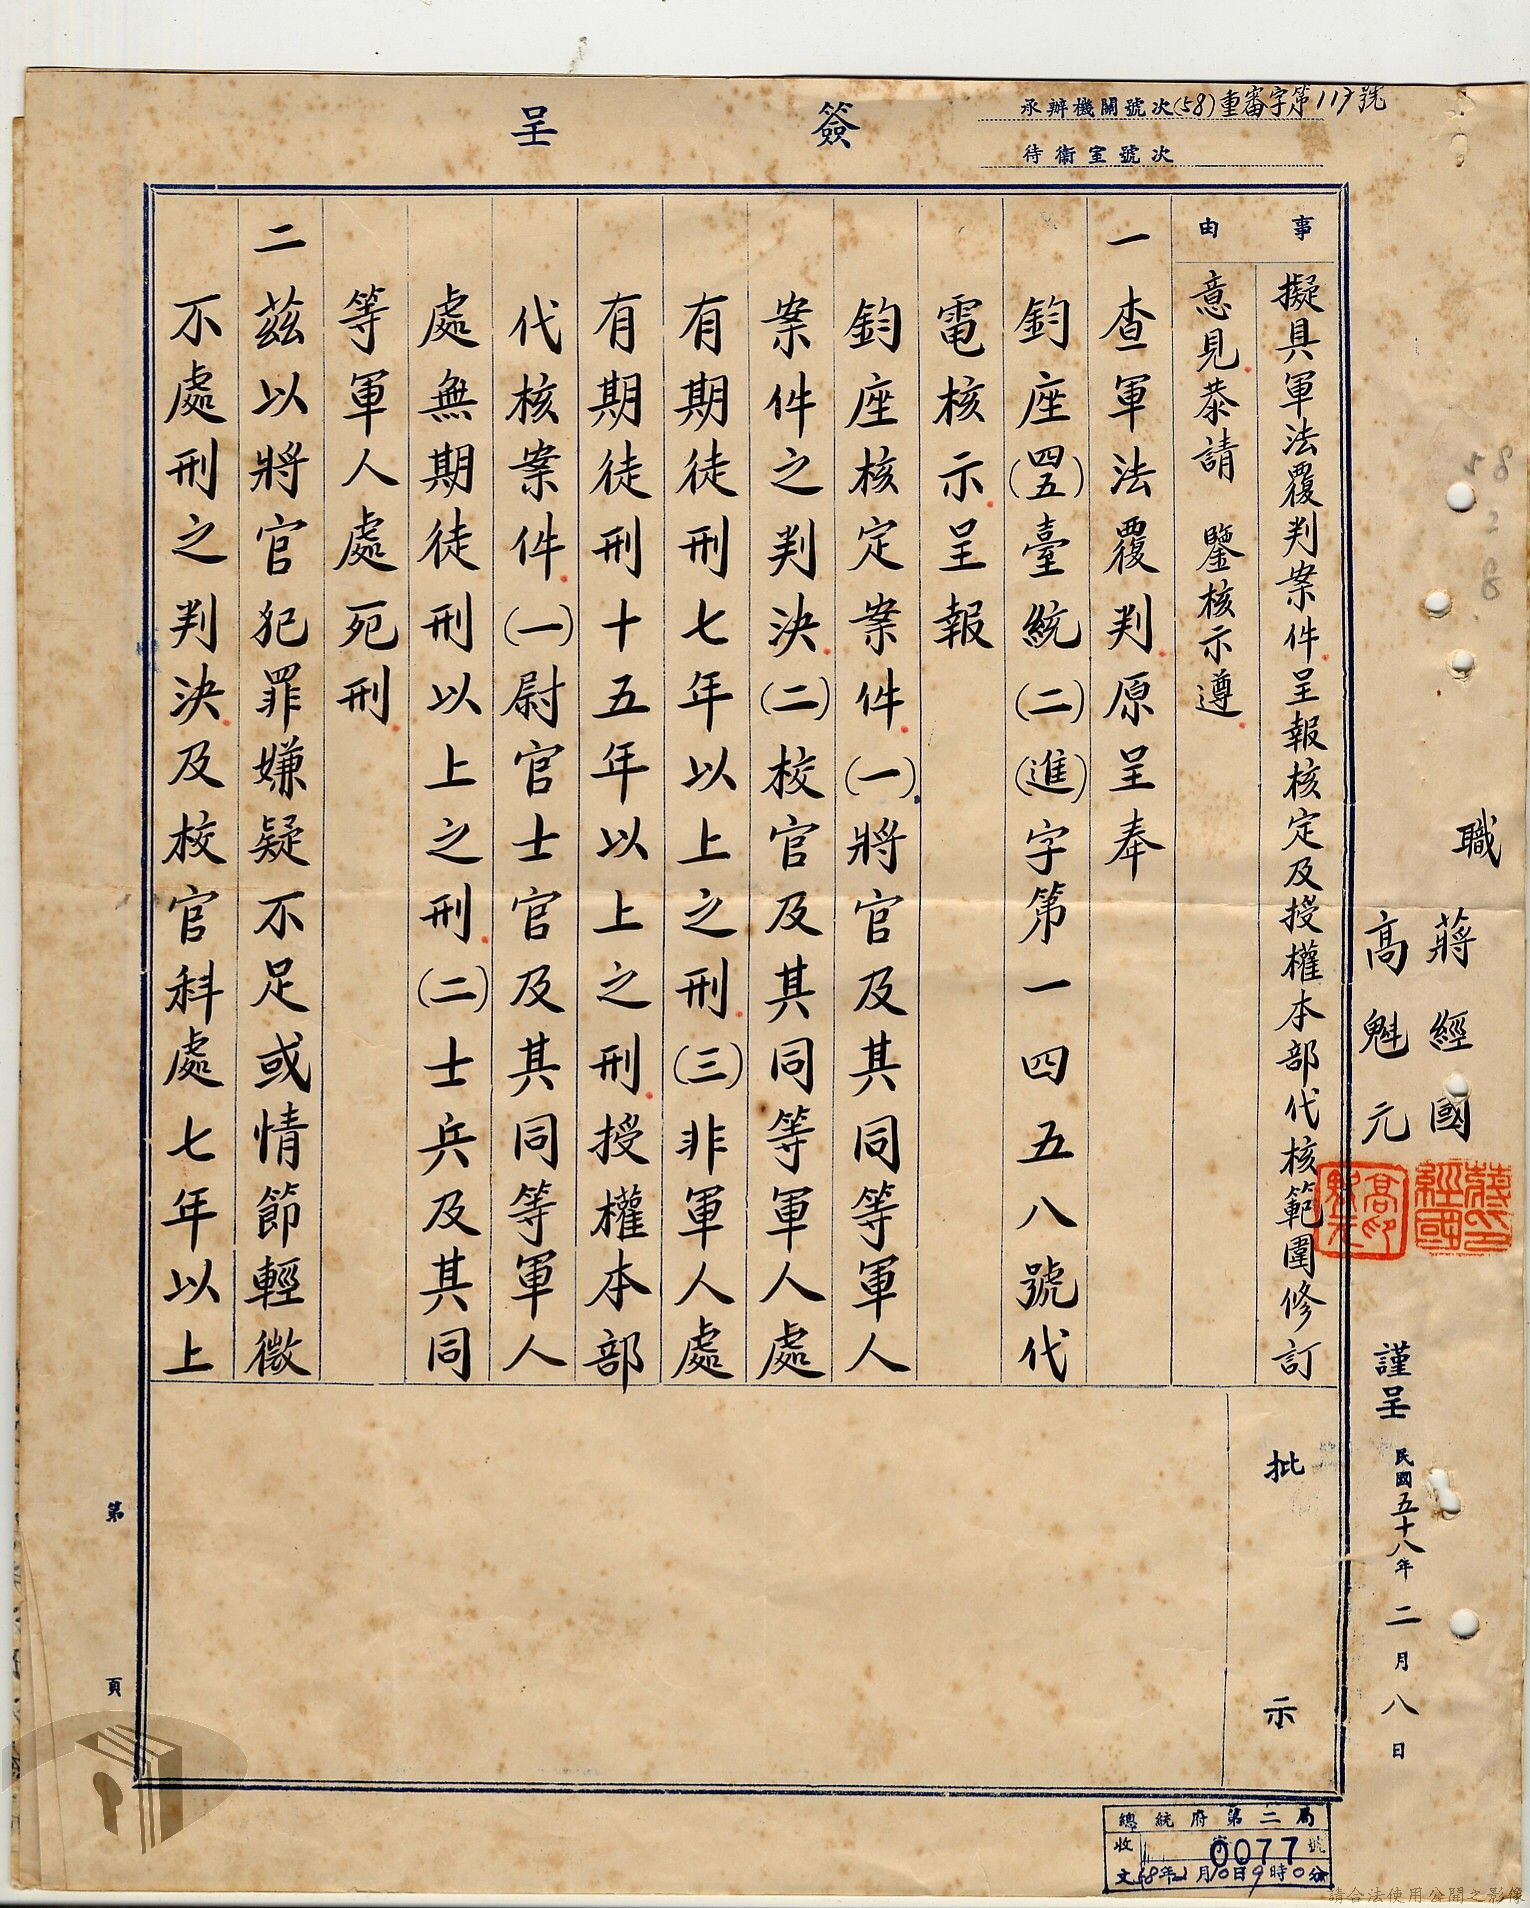 承辦機關號次(58)重審字第117號
待衛室號次
簽呈
職
蔣經國
高魁元
謹呈
民國五十八年二月八日
事由
擬具軍法覆判案件呈報核定及授權本部代核範圍修訂
意見恭請 鑒核示遵
一查軍法覆判原呈奉
鈞座(四五)臺統(二)(進)字第一四五八號代
電核示呈報
鈞座核定案件(一)將官及其同等軍人
案件之判決(二)校官及其同等軍人處
有期徒刑七年以上之刑(三)非軍人處
有期徒刑十五年以上之刑授權本部
代核案件(一)尉官士官及其同等軍人
處無期徒刑以上之刑(二)士兵及其同
等軍人處死刑
二茲以將官犯罪嫌疑不足或情節輕微
不處刑之判決及校官科處七年以上
批示
第 頁
總統府第二局
收 0077號
文58年2月10日9時0分
58
2
8
請合法使用公開之影像